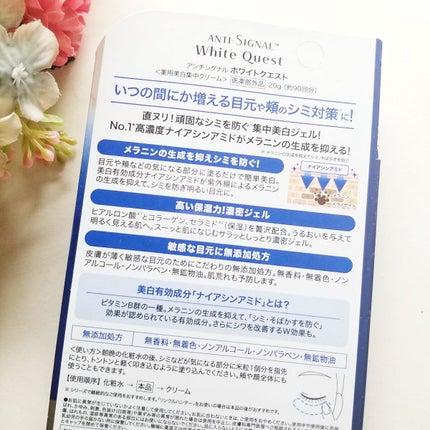 ANTI-SIGNAL™
White Quest
アンチシグナル ホワイトクエスト
<薬用美白集中クリーム> 医薬部外品 20g(約90回分)
いつの間にか増える目元や頬のシミ対策に!
直ヌリ!頑固なシミを防ぐ*集中美白ジェル!
No.1*高濃度ナイアシンアミドがメラニンの生成を抑える!
メラニンの生成を抑えシミを防ぐ!
ナイアシンアミド
目元や頬などの気になる部分に塗るだけで簡単美白。
美白有効成分ナイアシンアミドが紫外線によるメラニン
の生成を抑えて、シミを防ぎ明るい目元に。
高い保湿力!濃密ジェル
ヒアルロン酸*とコラーゲン、セラミド*(保湿)を贅沢配合。うるおいを与えて
明るく見える肌へ。スーッと肌になじむサラッとしっとり濃密ジェル。
敏感な目元に無添加処方
皮膚が薄く敏感な目元のためにこだわりの無添加処方。無香料・無着色・ノン
アルコール・ノンパラベン・無鉱物油。肌荒れも予防します。
美白有効成分「ナイアシンアミド」とは?
ビタミンB群の一種。メラニンの生成を抑えて、「シミ・そばかすを防ぐ」
効果が認められている有効成分。さらにシワを改善するW効果も。
無添加処方 無香料・無着色・ノンアルコール・ノンパラベン・無鉱物油
<使い方>朝晩の化粧水の後、シミなどが気になる部分に米粒1個分を指先
にとり、トントンと軽く叩き込むように塗り込んでください。頬や顔全体にも
使うこともできます。
【使用順序】化粧水→本品→クリーム